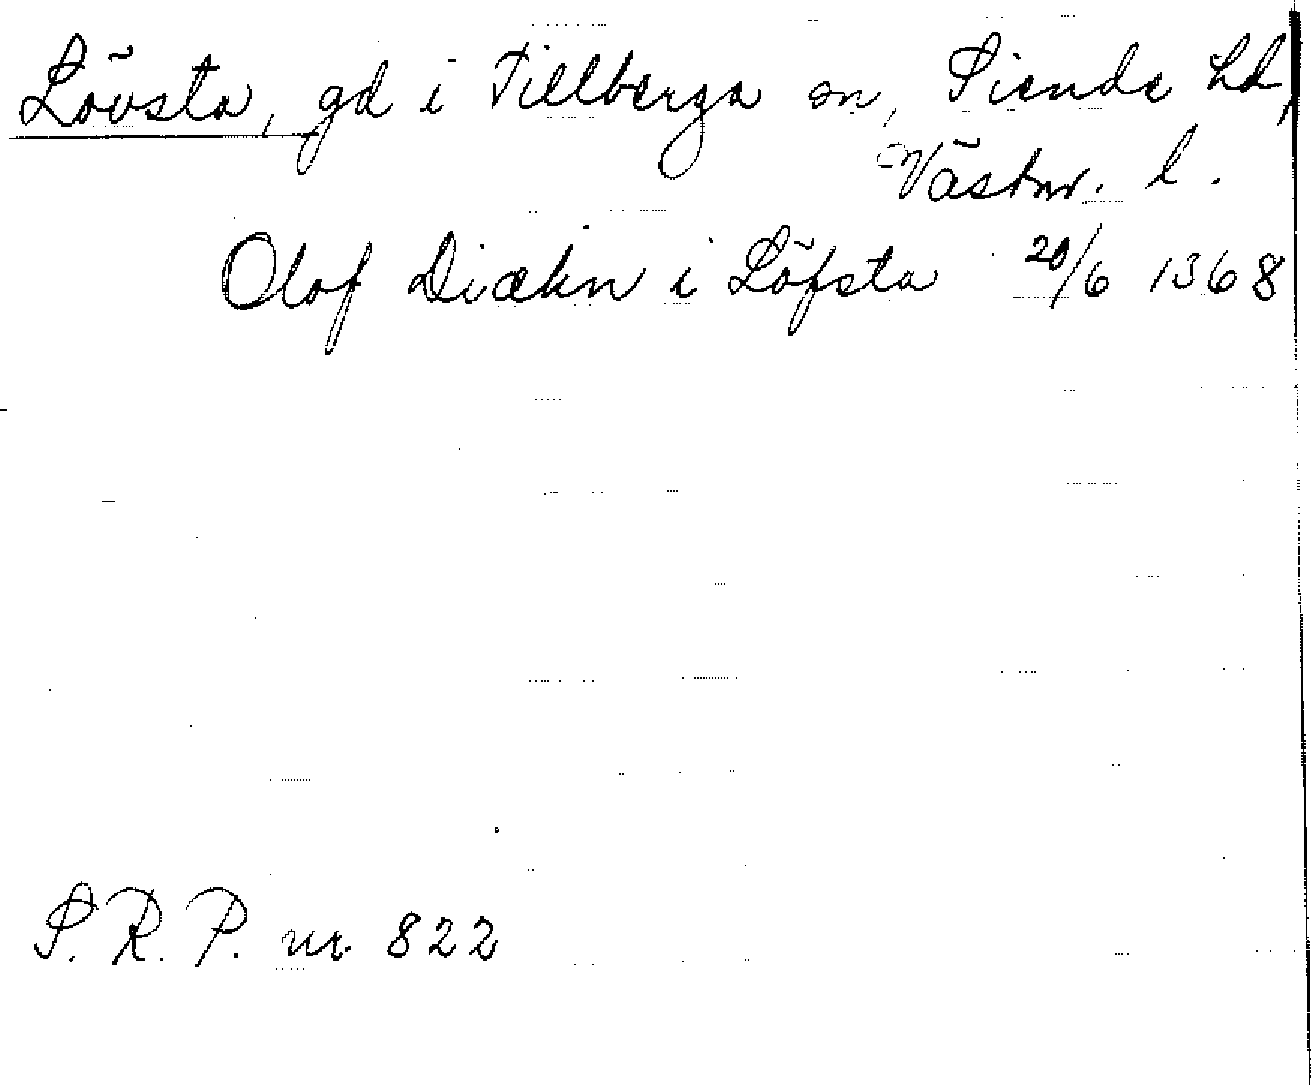 Lövsta, gd i Tillberga sn, Siende hd,
Västm. l.
Olof Diækn i Löfsta 20/6 1368
S. R. P. nr 822